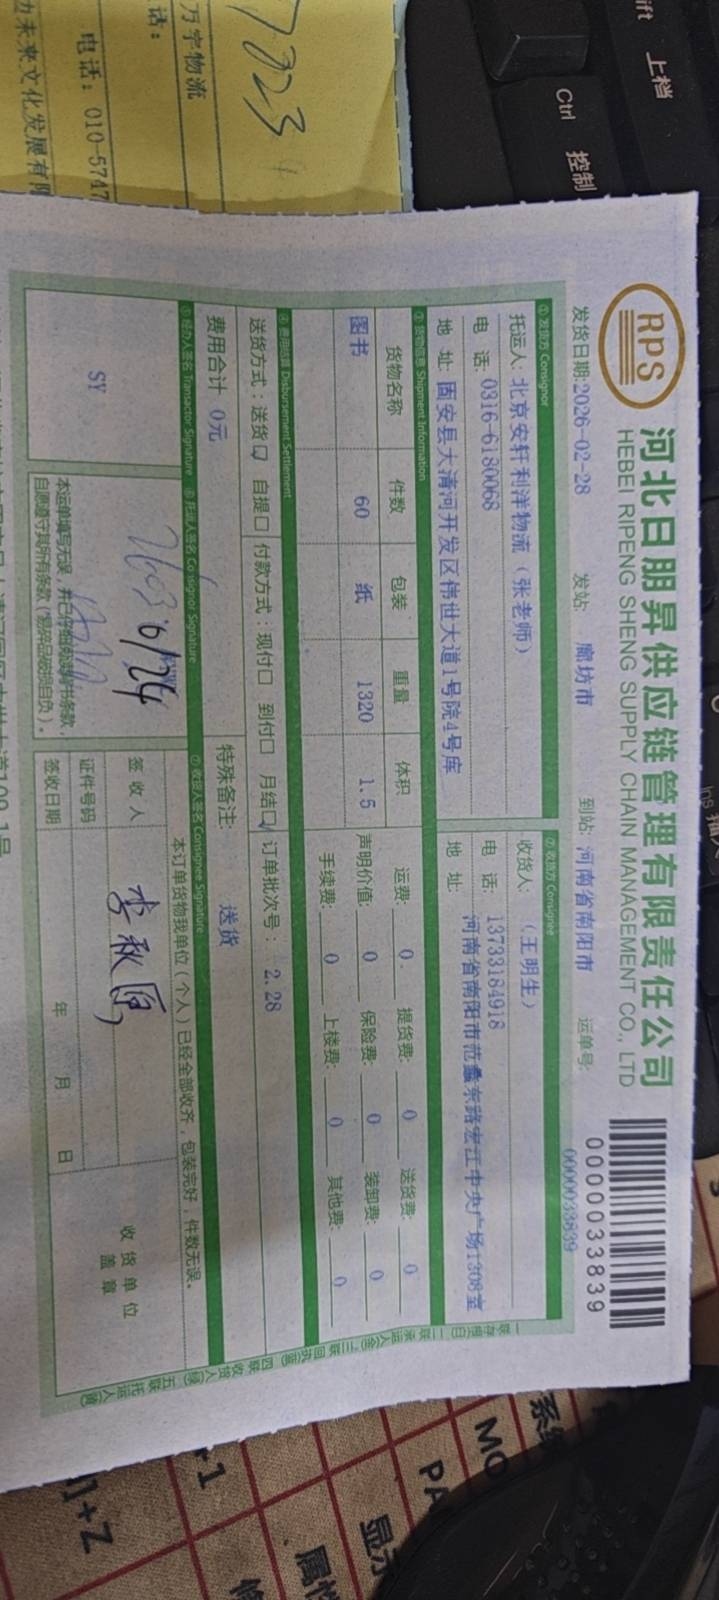 7023
万宇物流
话：
电话：010-5747
力未来文化发展有限
ift 上档
Ctrl 控制
Ins
RPS
河北日朋昇供应链管理有限责任公司
HEBEI RIPENG SHENG SUPPLY CHAIN MANAGEMENT CO., LTD
0000033839
发货日期:2026-02-28 发站: 廊坊市 到站: 河南省南阳市 运单号: 0000033839
①发货方 Consignor
托运人: 北京安轩利洋物流（张老师）
电 话: 0316-6180068
地 址: 固安县大清河开发区伟世大道1号院4号库
②收货方 Consignee
收货人: （王明生）
电 话: 13733184918
地 址: 河南省南阳市范蠡东路宏江中央广场1308室
③货物信息 Shipment Information
货物名称 件数 包装 重量 体积
图书 60 纸 1320 1.5
运费: 0 提货费: 0 送货费: 0
声明价值: 0 保险费: 0 装卸费: 0
手续费: 0 上楼费: 0 其他费: 0
④费用结算 Disbursement Settlement
送货方式：送货☑ 自提□ 付款方式：现付□ 到付□ 月结☑ 订单批次号： 2.28
费用合计 0元 特殊备注: 送货
⑤经办人签名 Transactor Signature
SY
⑥托运人签名 Consignor Signature
本运单填写无误，并已仔细阅读背书条款，
自愿遵守其所有条款(*易碎品破损自负)。
⑦收货人签名 Consignee Signature
本订单货物我单位（个人）已经全部收齐，包装完好，件数无误。
签 收 人
证件号码
签收日期 年 月 日
收 货 单 位
盖 章
一联存根(白) 二联承运人(金) 三联回执(蓝) 四联收货人(绿) 五联托运人(黄)
MO
PA
显示
属性
]+Z
+1